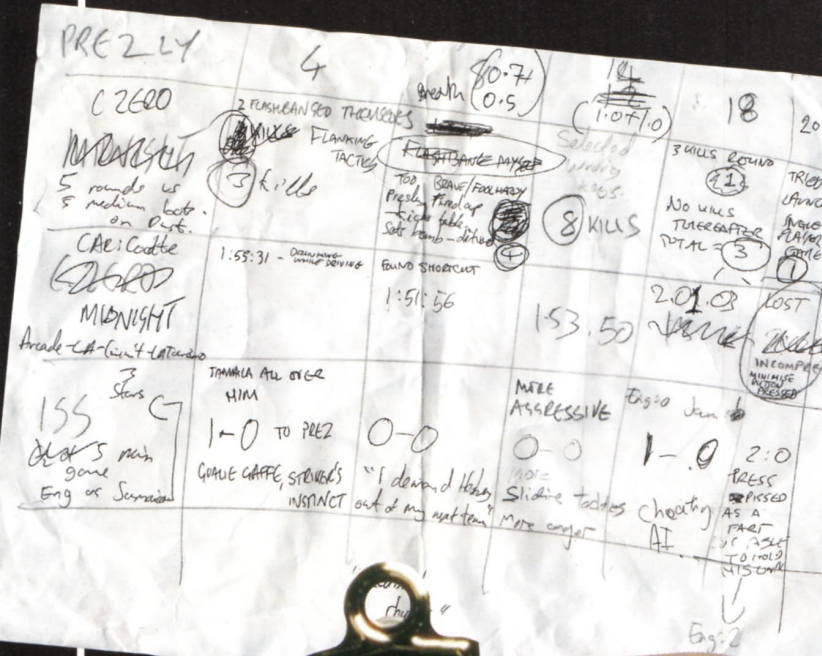 PREZLY
4
Breath
0.7+
0.5
14
(1.0+1.0)
18
20
C ZERO
5 rounds vs
5 medium bots.
on Dust.
2 FLASHBANGED THEMSELVES
KILLS FLANKING
TACTICS
3 kills
FLASHBANGE
TOO BRAVE/FOOLHARDY
Sets bomb - defused
4
Selected
wrong
keys.
8 KILLS
3 KILLS ROUND
1
NO KILLS
THEREAFTER
TOTAL = 3
TRIED
LAUNCH
SINGLE
PLAYER
GAME
1
MIDNIGHT
Arcade-LA-
1:55:31 - DRINKING
WHILE DRIVING
FOUND SHORTCUT
1:51:56
1:53.50
2.01.03
LOST
MINIMISE
BUTTON
PRESSED
3
Stars
ISS
5 min
game
Eng vs Jamaica
TAMALA ALL OVER
HIM
1-0 TO PREZ
GOALIE GAFFE, STRIKER'S
INSTINCT
0-0
"I demand Heskey
out of my next team"
MORE
AGGRESSIVE
0-0
more
Sliding Tackles
More anger
Eng:0 Jam:
1-0
Cheating
AI
2:0
PRESS
PISSED
AS A
FART
TO HOLD
HIS OWN
Eng:2